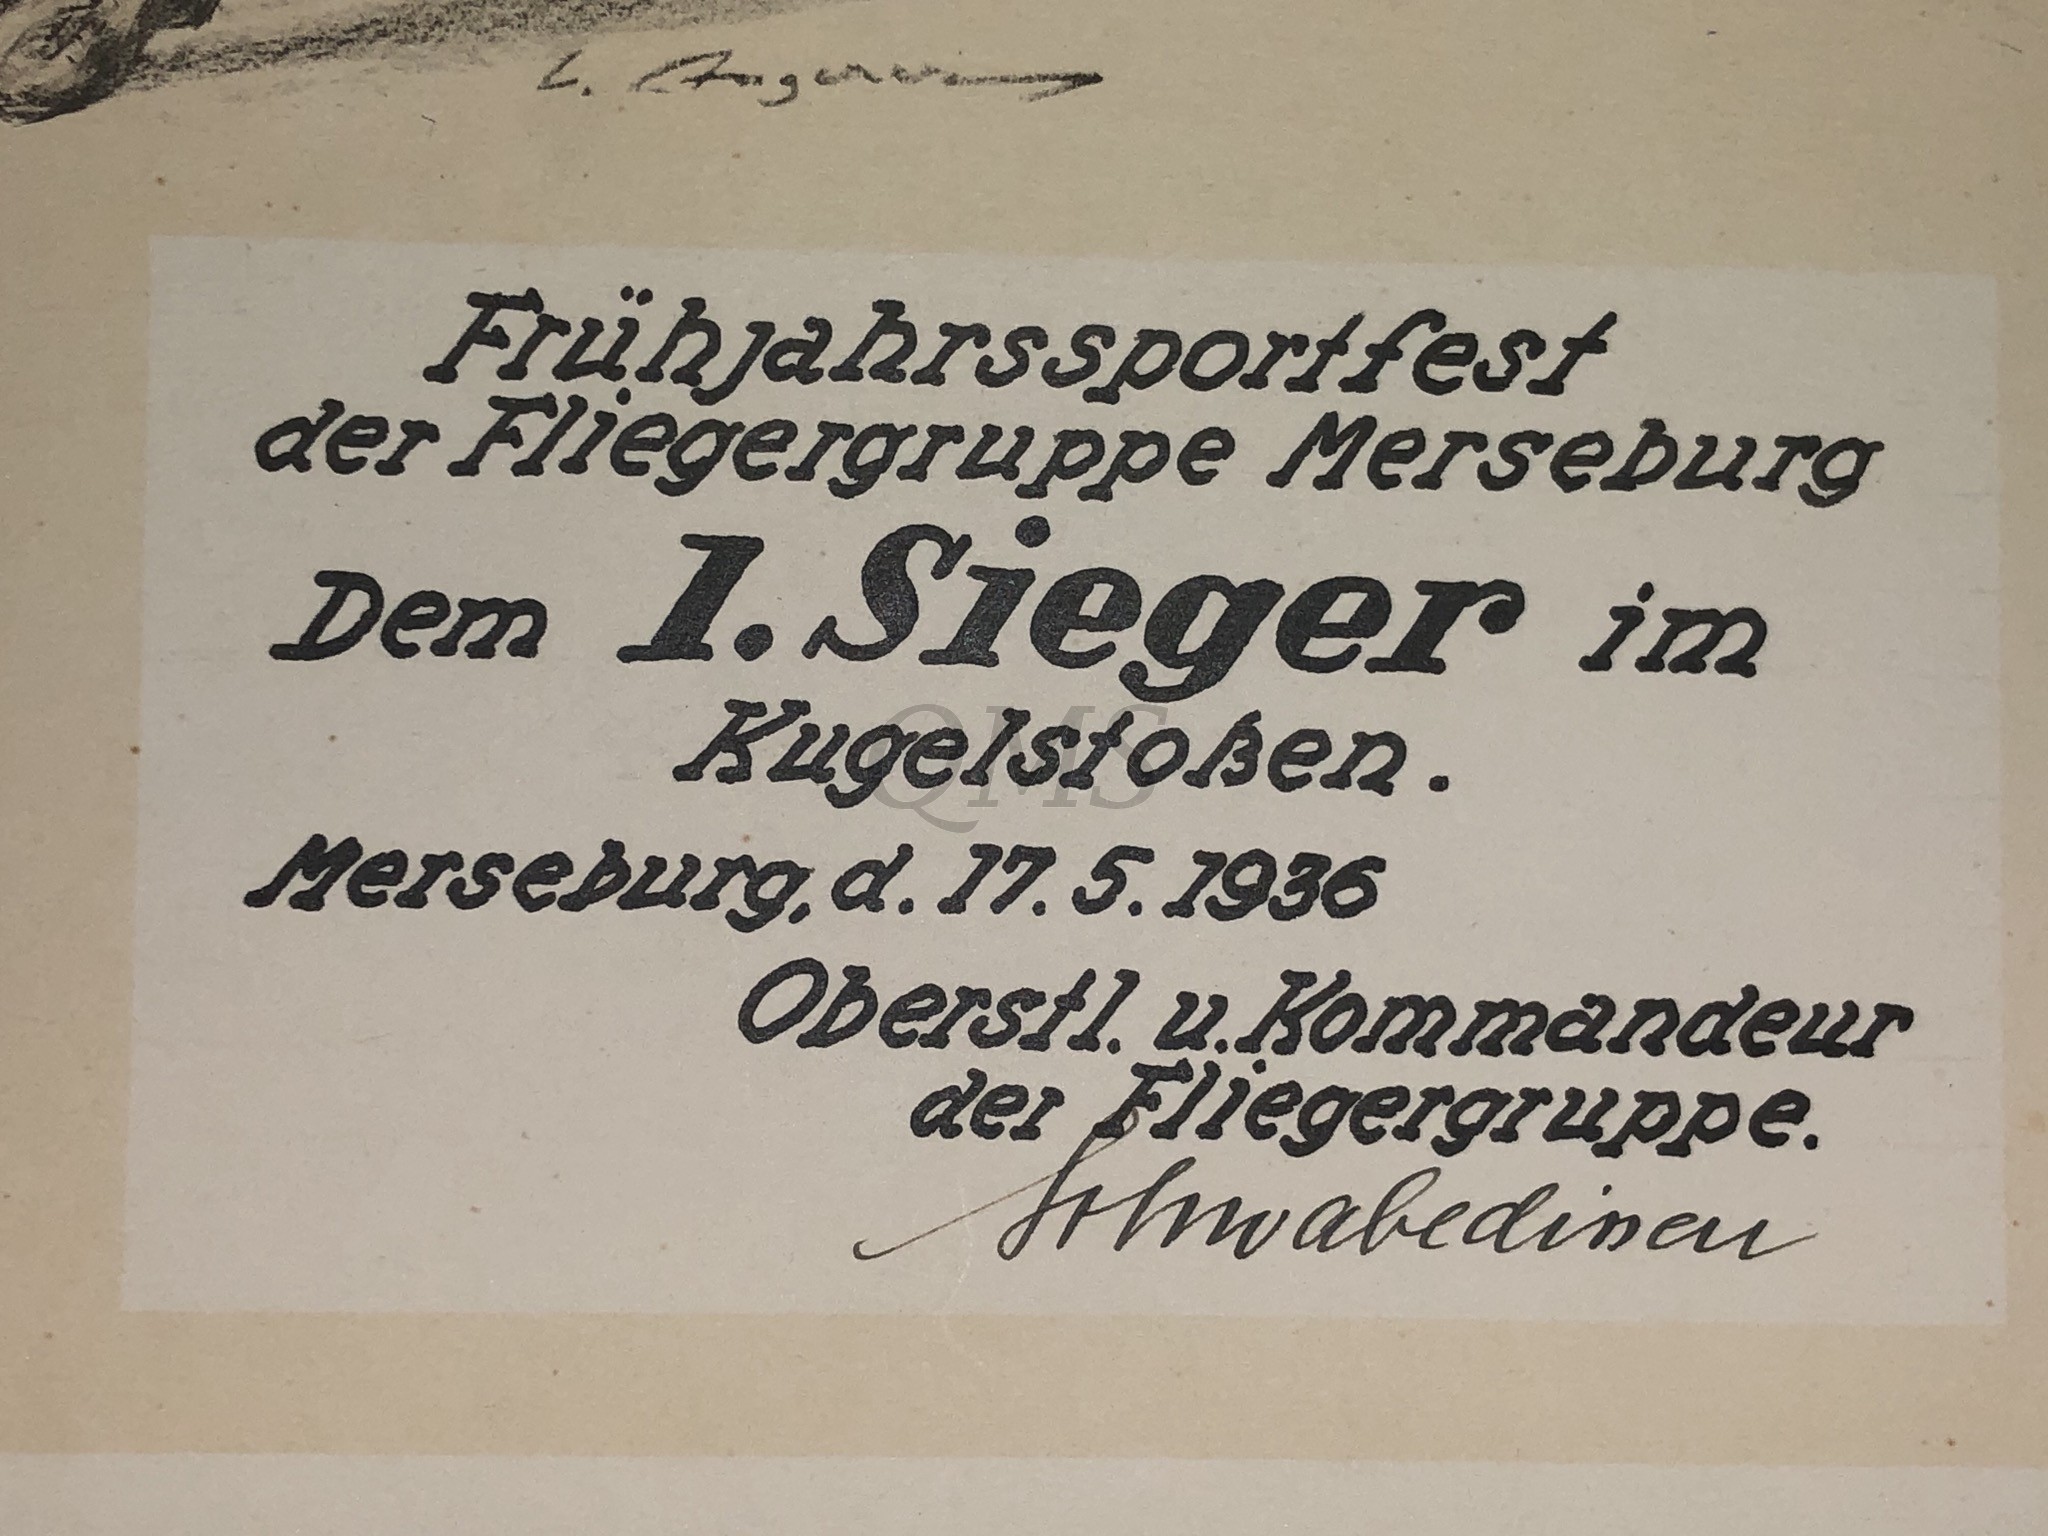 L. Angerer
Frühjahrssportfest
der Fliegergruppe Merseburg
Dem 1. Sieger im
Kugelstoßen.
QMS
Merseburg, d. 17. 5. 1936
Oberstl. u. Kommandeur
der Fliegergruppe.
Schwabedissen